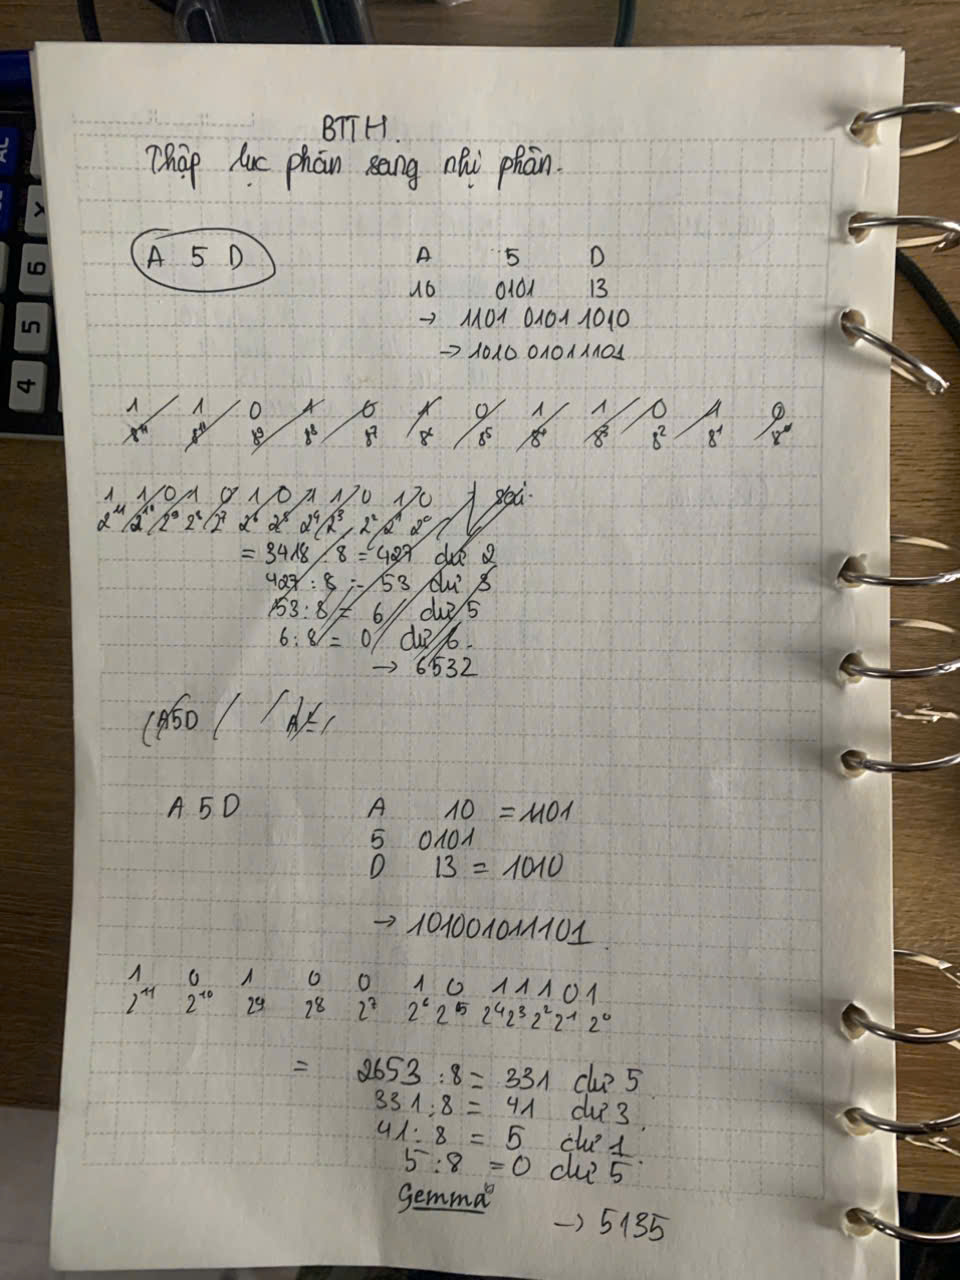 BTTH.
Thập lục phân sang nhị phân.
A 5 D
A 5 D
10 0101 13
→ 1101 0101 1010
→ 1010 01011101
1 1 0 1 0 1 0 1 1 0 1 0
8¹¹ 8¹⁰ 8⁹ 8⁸ 8⁷ 8⁶ 8⁵ 8⁴ 8³ 8² 8¹ 8⁰
1 1 0 1 0 1 0 1 1 0 1 0 sai.
2¹¹ 2¹⁰ 2⁹ 2⁸ 2⁷ 2⁶ 2⁵ 2⁴ 2³ 2² 2¹ 2⁰
= 3418 : 8 = 427 dư 2
427 : 8 = 53 dư 3
53 : 8 = 6 dư 5
6 : 8 = 0 dư 6.
→ 6532
(A5D
A 5 D
A 10 = 1101
5 0101
D 13 = 1010
→ 101001011101
1 0 1 0 0 1 0 1 1 1 0 1
2¹¹ 2¹⁰ 2⁹ 2⁸ 2⁷ 2⁶ 2⁵ 2⁴ 2³ 2² 2¹ 2⁰
= 2653 : 8 = 331 dư 5
331 : 8 = 41 dư 3
41 : 8 = 5 dư 1
5 : 8 = 0 dư 5
Gemma
→ 5135
AL
6
5
4